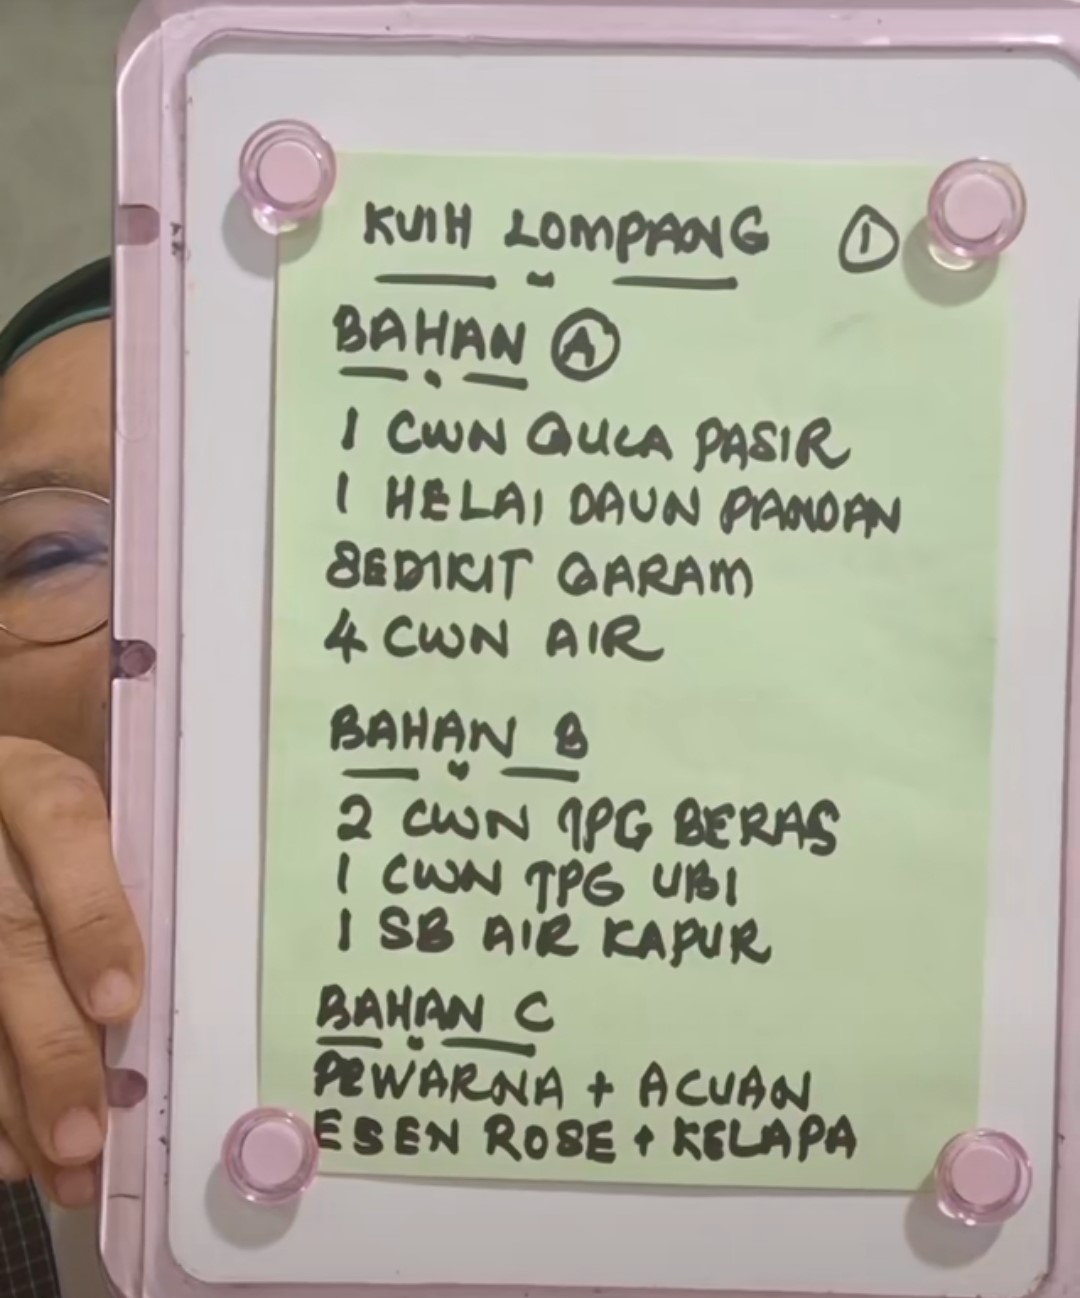 KUIH LOMPANG 1
BAHAN A
1 CWN GULA PASIR
1 HELAI DAUN PANDAN
SEDIKIT GARAM
4 CWN AIR
BAHAN B
2 CWN TPG BERAS
1 CWN TPG UBI
1 SB AIR KAPUR
BAHAN C
PEWARNA + ACUAN
ESEN ROSE + KELAPA